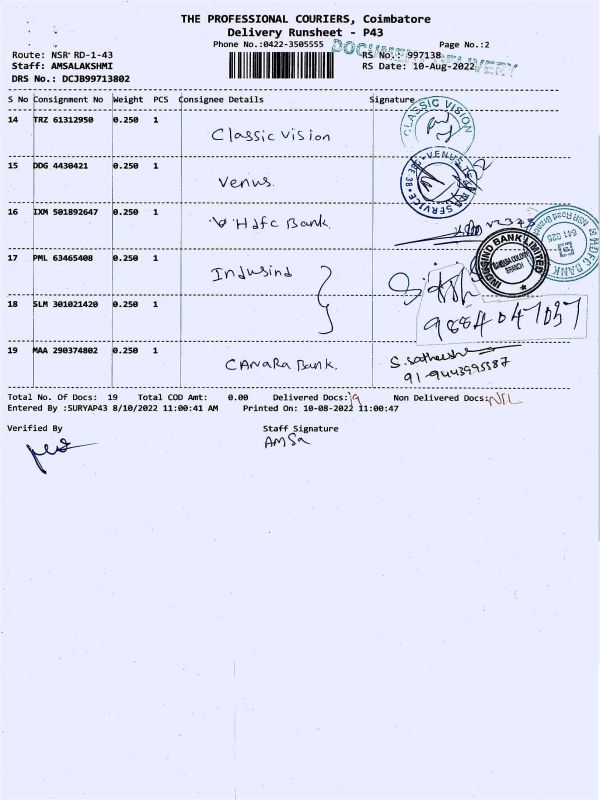 THE PROFESSIONAL COURIERS, Coimbatore
Delivery Runsheet - P43
Phone No.:0422-3505555 Page No.:2
DOCUMENT DELIVERY
Route: NSR RD-1-43 RS No.: 997138
Staff: AMSALAKSHMI RS Date: 10-Aug-2022
DRS No.: DCJB99713802
S No Consignment No Weight PCS Consignee Details Signature
14 TRZ 61312950 0.250 1 Classic Vision
CLASSIC VISION
15 DDG 4430421 0.250 1 Venus
VENUS SERVICE
16 IXM 501892647 0.250 1 Hdfc Bank.
HDFC BANK NSR Road Branch 641 025
17 PML 63465408 0.250 1 Indusind
INDUSIND BANK LIMITED BRANCH
18 SLM 301021420 0.250 1
9884047057
19 MAA 290374802 0.250 1 CANARA Bank.
91-9443995587
Total No. Of Docs: 19 Total COD Amt: 0.00 Delivered Docs:19 Non Delivered Docs:NIL
Entered By :SURYAP43 8/10/2022 11:00:41 AM Printed On: 10-08-2022 11:00:47
Verified By Staff Signature
AMSa